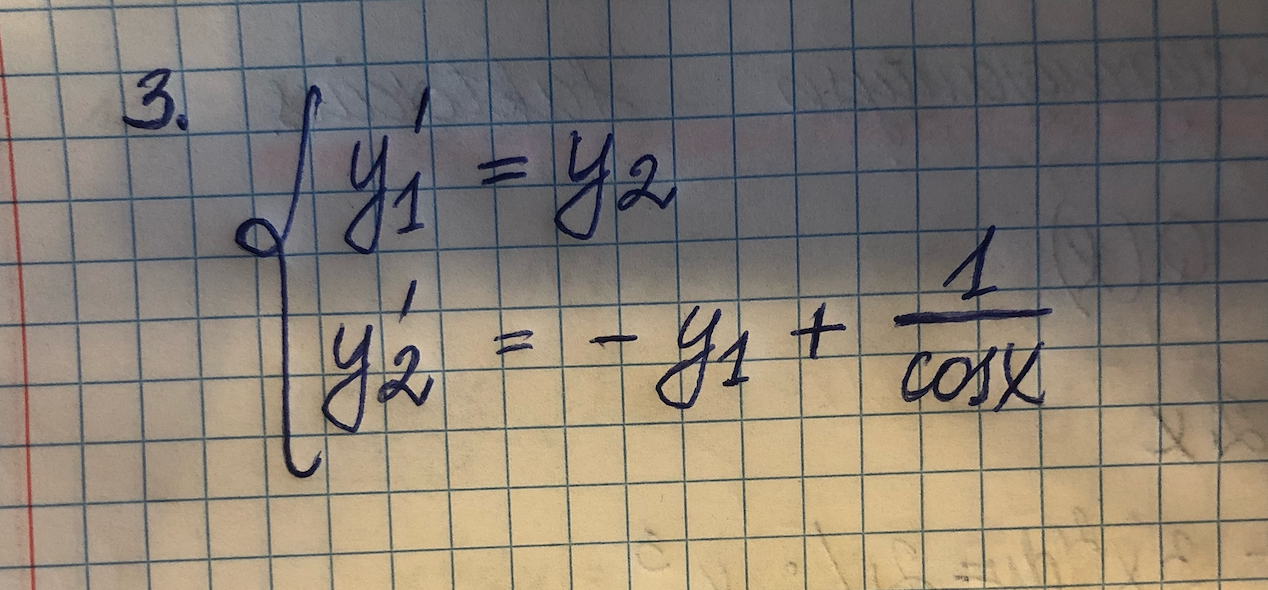 3.
y₁' = y₂
y₂' = - y₁ + 1/cosx